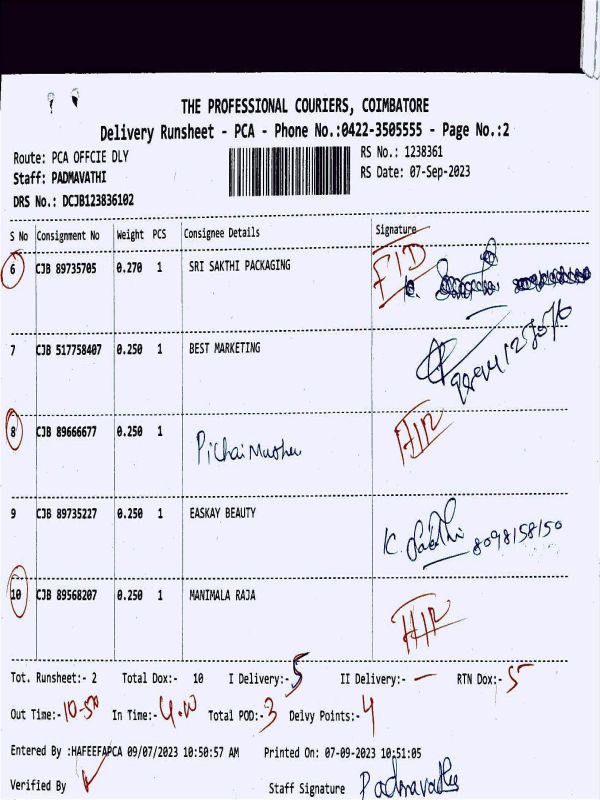 THE PROFESSIONAL COURIERS, COIMBATORE
Delivery Runsheet - PCA - Phone No.:0422-3505555 - Page No.:2
Route: PCA OFFCIE DLY RS No.: 1238361
Staff: PADMAVATHI RS Date: 07-Sep-2023
DRS No.: DCJB123836102
S No Consignment No Weight PCS Consignee Details Signature
6 CJB 89735705 0.270 1 SRI SAKTHI PACKAGING
7 CJB 517758407 0.250 1 BEST MARKETING
8 CJB 89666677 0.250 1
9 CJB 89735227 0.250 1 EASKAY BEAUTY K. 8098158150
10 CJB 89568207 0.250 1 MANIMALA RAJA
Tot. Runsheet:- 2 Total Dox:- 10 I Delivery:- 5 II Delivery:- — RTN Dox:- 5
Out Time:- 10-50 In Time:- 4.10 Total POD:- 3 Delvy Points:- 4
Entered By :HAFEEFAPCA 09/07/2023 10:50:57 AM Printed On: 07-09-2023 10:51:05
Verified By Staff Signature Padmavathi